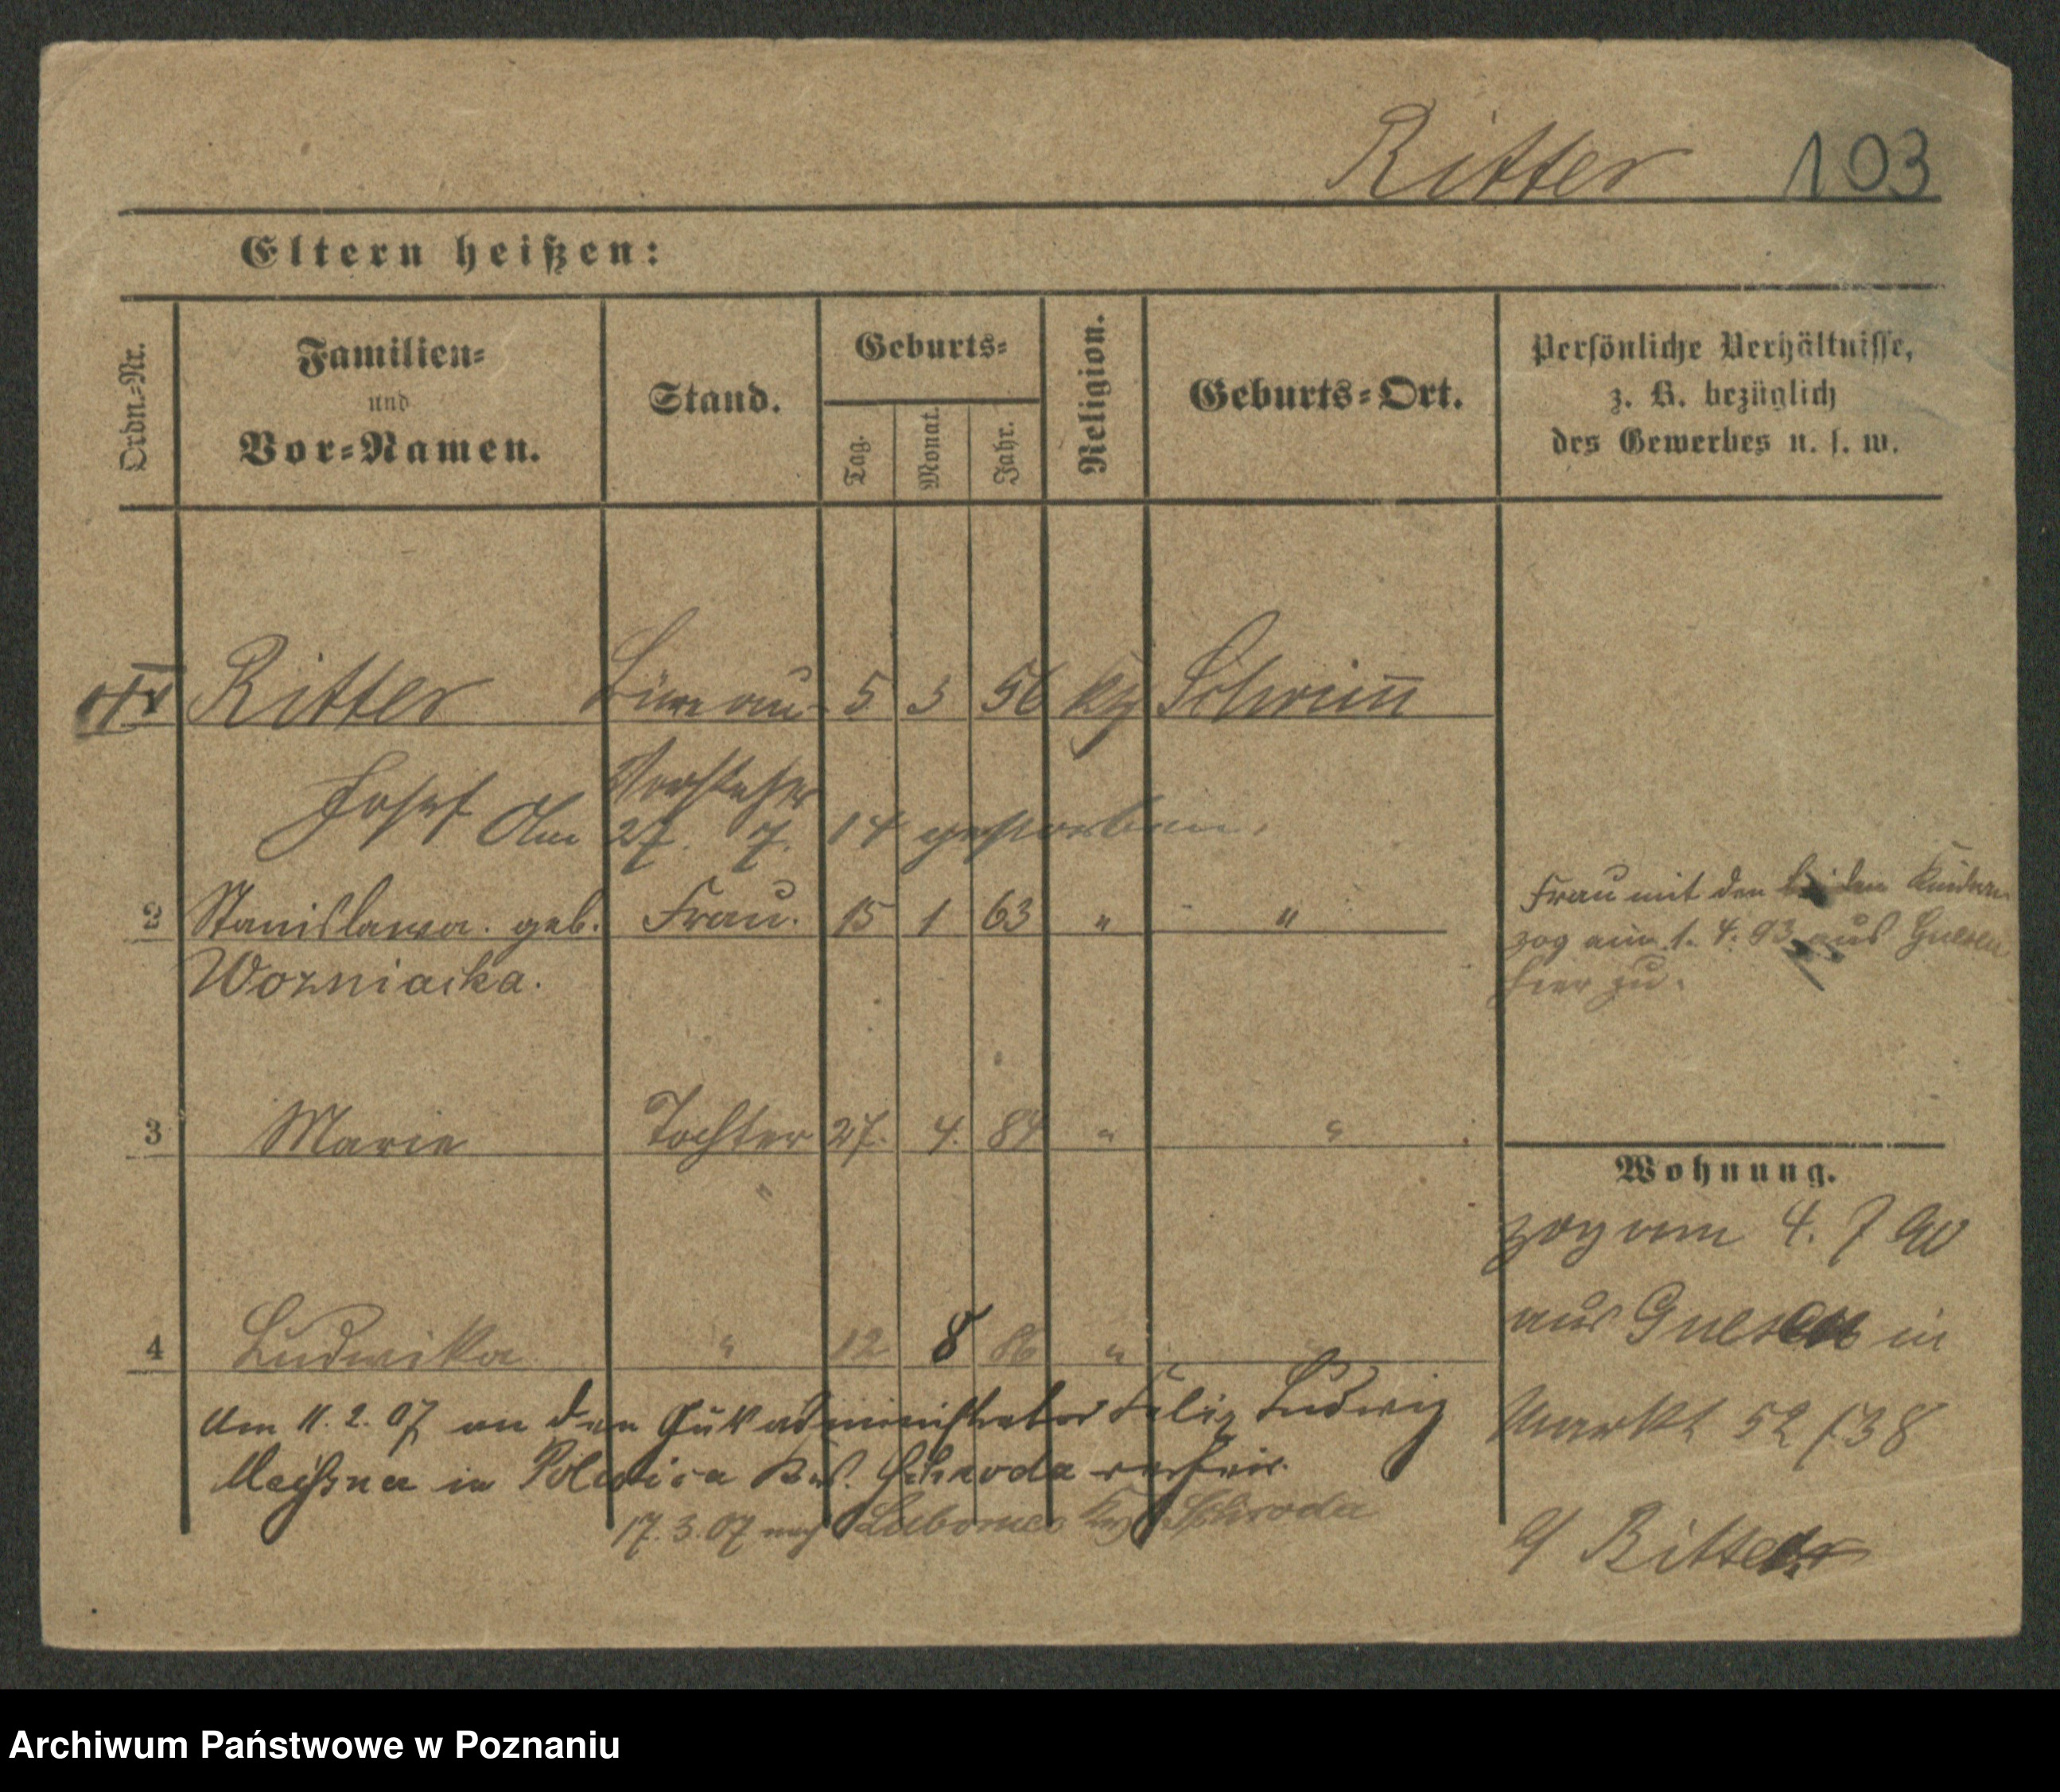 Ritter 103
Eltern heißen:
Ordn.-Nr.
Familien-
und
Vor-Namen.
Stand.
Geburts-
Tag.
Monat.
Jahr.
Religion.
Geburts-Ort.
Persönliche Verhältnisse,
z. B. bezüglich
des Gewerbes u. s. w.
Ritter Büreau- 5 3 56 Schrimm
Josef Vorsteher
Am 27. 7. 14 gestorben.
2 Stanislawa. geb. Frau. 15 1 63 " "
Wozniacka.
Frau mit den beiden Kindern
zog am 1. 4. 93 aus Gnesen
hier zu.
3 Marie Tochter 27. 4. 84 " "
Wohnung.
zog am 4. 7 90
aus Gnesen in
4 Ludwika " 12 8 86 "
Markt 52/38
Am 11. 2. 07 an den Gutsadministrator Felix Ludwig
Meißner in Polwica Krs. Schroda verheir.
17. 3. 07 nach Schroda
Ritter
Archiwum Państwowe w Poznaniu